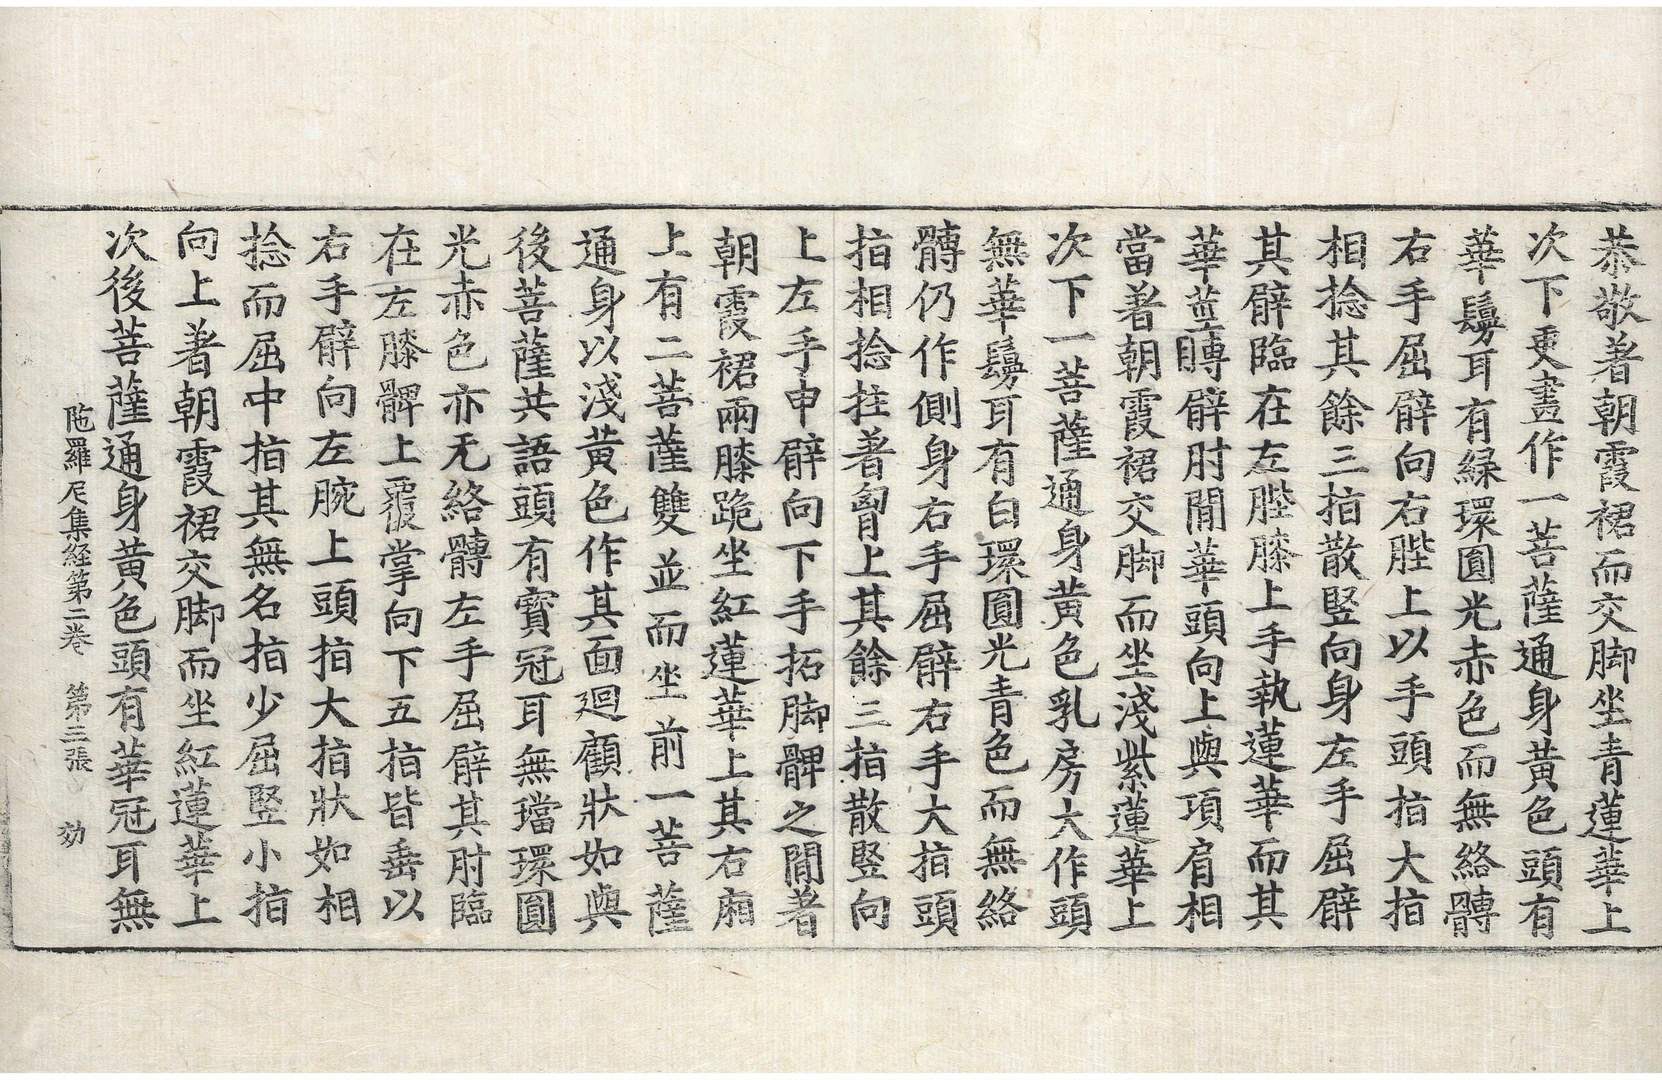 恭敬著朝霞裙而交脚坐青蓮華上
次下更畫作一菩薩通身黃色頭有
華鬘耳有緑環圓光赤色而無絡髆
右手屈臂向右䏶上以手頭指大指
相捻其餘三指散竪向身左手屈臂
其臂臨在左䏶膝上手執蓮華而其
華莖瞟臂肘間華頭向上與項肩相
當著朝霞裙交脚而坐淺紫蓮華上
次下一菩薩通身黃色乳房大作頭
無華鬘耳有白環圓光青色而無絡
髆仍作側身右手屈臂右手大指頭
指相捻拄著胷上其餘三指散竪向
上左手申臂向下手拓脚髀之間著
朝霞裙兩膝跪坐紅蓮華上其右廂
上有二菩薩雙並而坐前一菩薩
通身以淺黃色作其面廻顧狀如與
後菩薩共語頭有寶冠耳無璫環圓
光赤色亦无絡髆左手屈臂其肘臨
在左膝髀上覆掌向下五指皆垂以
右手臂向左腕上頭指大指狀如相
捻而屈中指其無名指少屈竪小指
向上著朝霞裙交脚而坐紅蓮華上
次後菩薩通身黃色頭有華冠耳無
陁羅尼集經第二卷　第三張　効